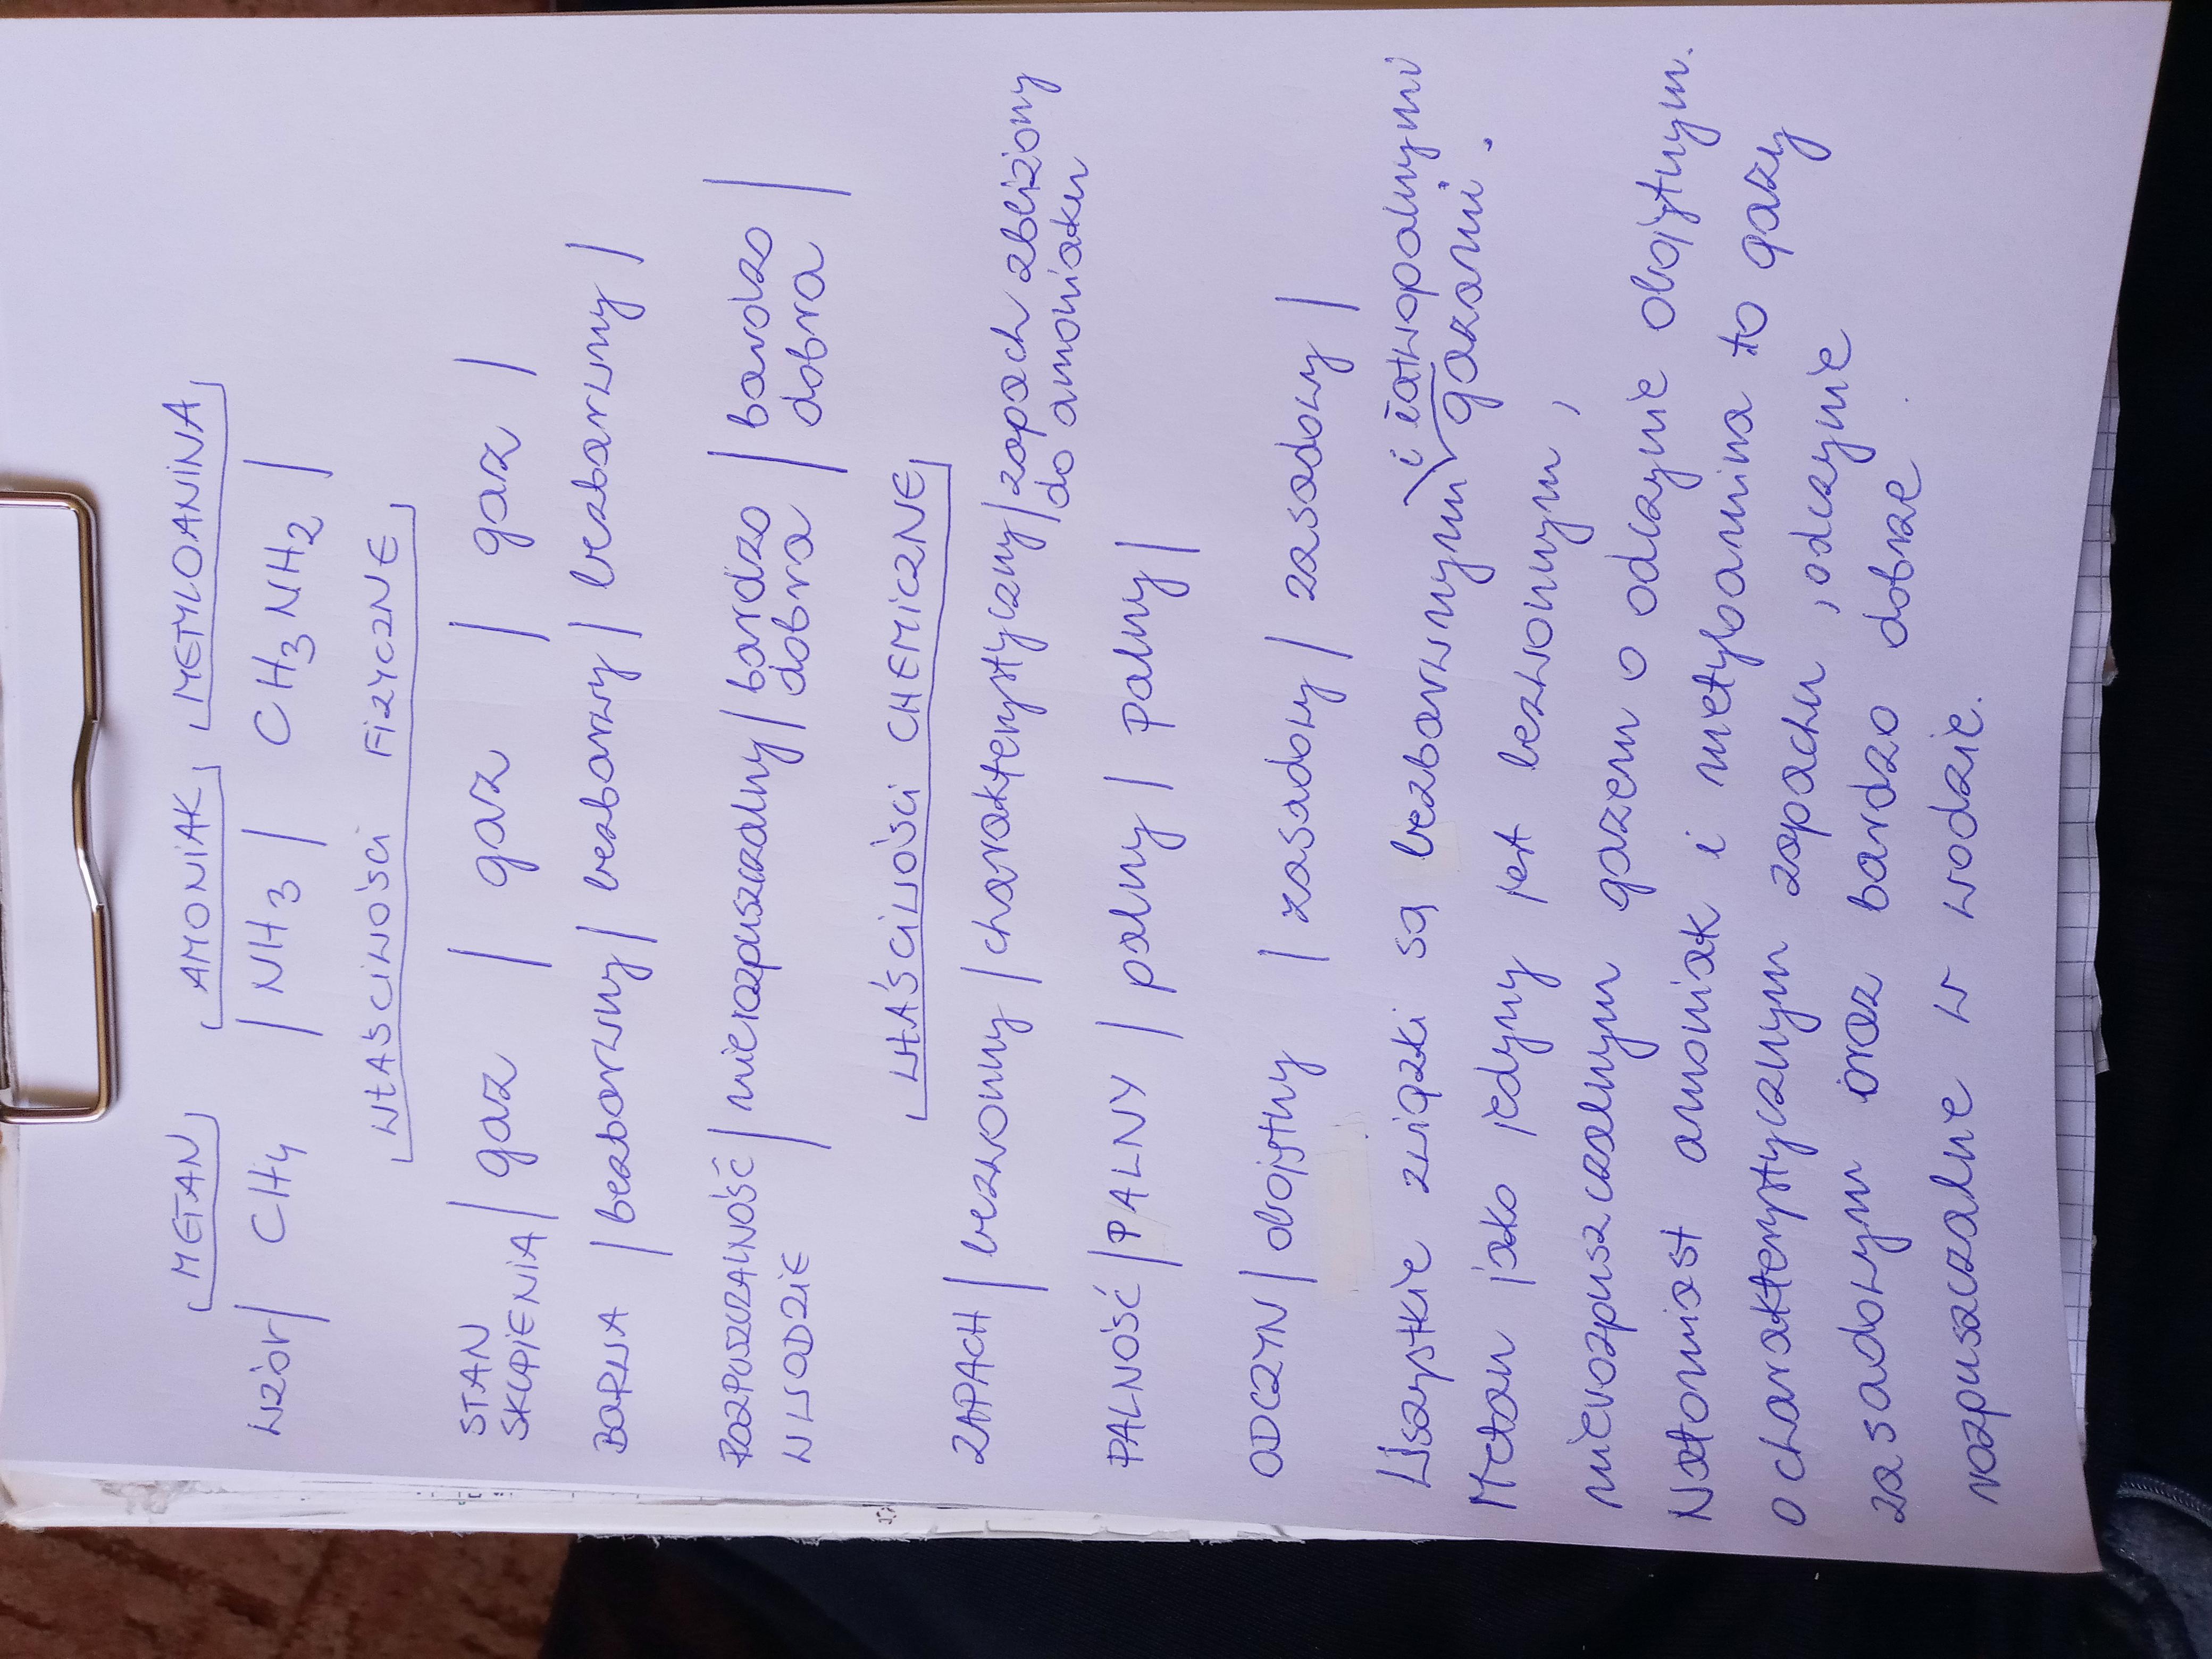 METAN AMONIAK METYLOANINA
WZÓR | CH4 | NH3 | CH3NH2 |
WŁAŚCIWOŚCI FIZYCZNE
STAN SKUPIENIA | gaz | gaz | gaz |
BARWA | bezbarwny | bezbarwy | bezbarwny |
ROZPUSZCZALNOŚĆ | nierozpuszczalny | bardzo | bardzo |
W WODZIE dobra dobra
WŁAŚCIWOŚCI CHEMICZNE
ZAPACH | bezwonny | charakterystyczny | zapach zbliżony
do amoniaku
PALNOŚĆ | PALNY | palny | palny |
ODCZYN | obojętny | zasadowy | zasadowy |
Wszystkie związki są bezbarwnymi i łatwopalnymi
gazami.
Metan jako jedyny jest bezwonnym,
nierozpuszczalnym gazem o odczynie obojętnym.
Natomiast amoniak i metyloamina to gazy
o charakterystycznym zapachu, odczynie
zasadowym oraz bardzo dobrze
rozpuszczalne w wodzie.